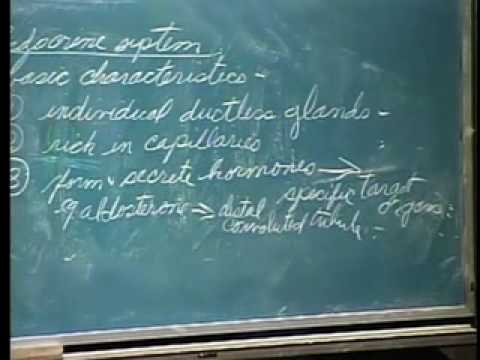 Endocrine system
basic characteristics -
① individual ductless glands -
② rich in capillaries
③ form & secrete hormones → specific target organs:
eg aldosterone ⇒ distal convoluted tubule -